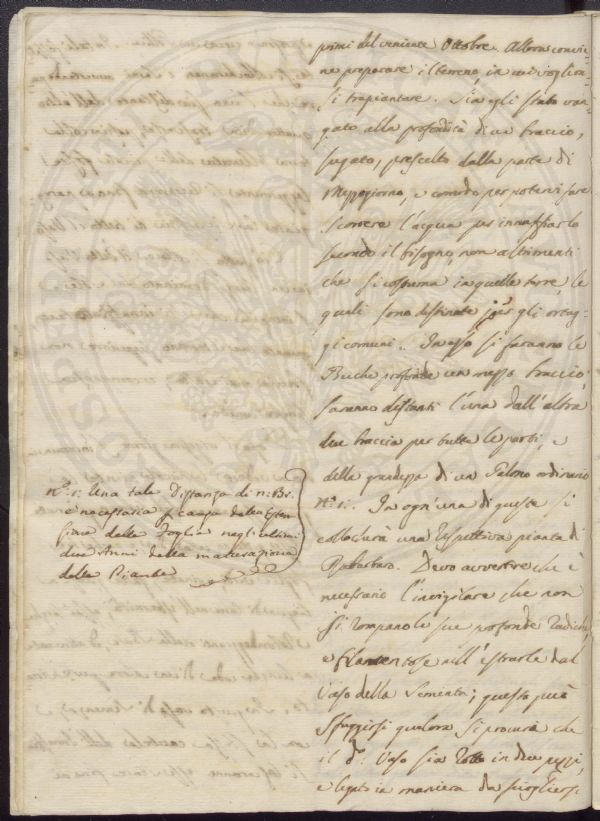 primi del veniente Ottobre. Allora convie-
ne preparare il terreno, in cui voglion-
si trapiantare. Sia egli stato van-
gato alla profondità di un braccio,
sugato, prescelto dalla parte di
Mezzogiorno, e comodo per potervi fare
scorrere l'acqua per innaffiarlo
secondo il bisogno, non altrimenti
che si costuma in quelle terre, le
quali sono destinate per gli ortag-
gi comuni. In esso si faranno le
Buche profonde un mezzo braccio,
saranno distanti l'una dall'altra
due braccia per tutte le parti, e
della grandezza di un Palono ordinario
N.° 1. In ogn'una di queste si
collocherà una rispettiva pianta di
Rabarbaro. Devo avvertire che è
necessario l'invigilare che non
si rompano le sue profonde Radici,
e filamentose nell'estrarle dal
Vaso della Sementa; questo può
sfuggirsi qualora si procuri che
il d.° Vaso sia rotto in due pezzi,
e legato in maniera da sciogliersi
N.° 1. Una tale Distanza di n.° Br.
è necessaria a causa della Esten-
sione delle Foglie negli ultimi
due Anni della maturazione
delle Piante